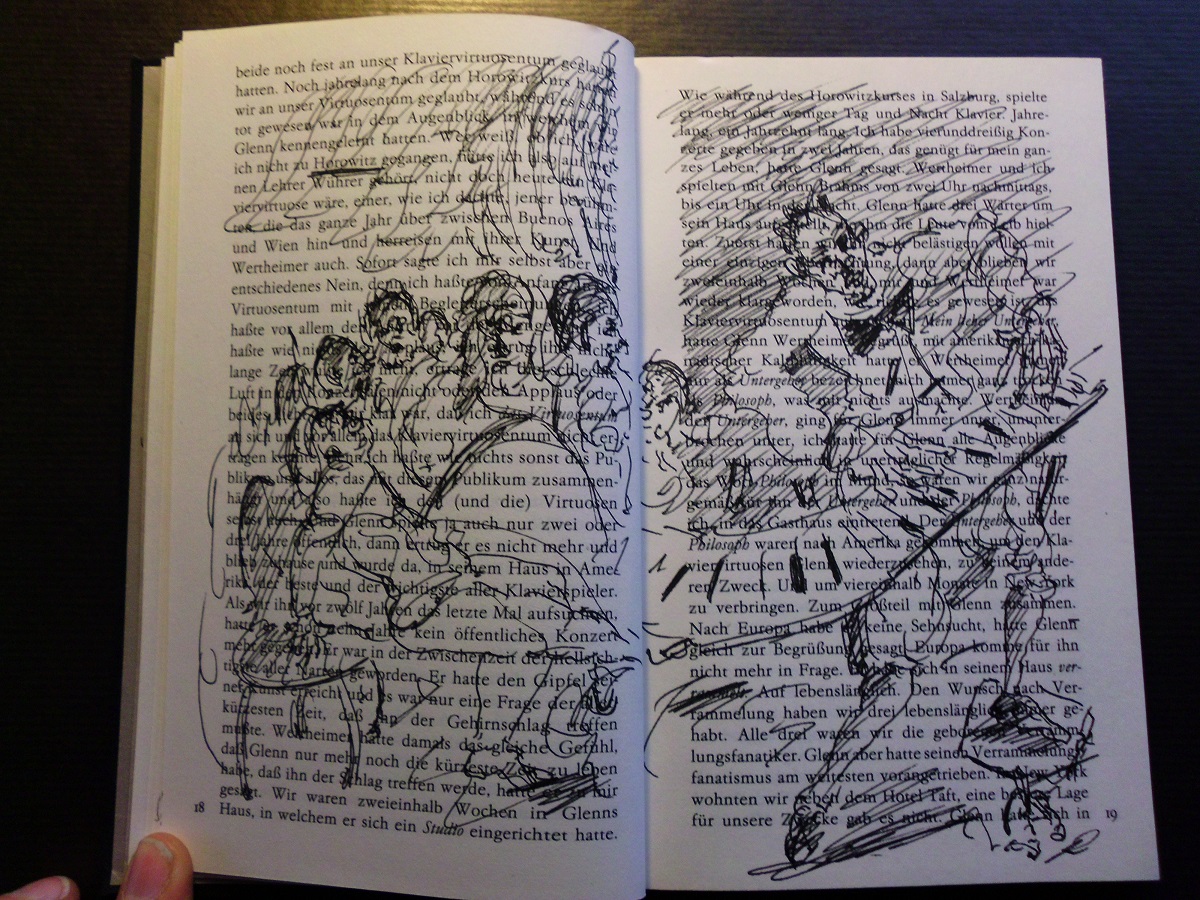 beide noch fest an unser Klaviervirtuosentum geglaubt
hatten. Noch jahrelang nach dem Horowitzkurs hatten
wir an unser Virtuosentum geglaubt, während es schon
tot gewesen war in dem Augenblick, in welchem wir
Glenn kennengelernt hatten. Wer weiß, ob ich, wäre
ich nicht zu Horowitz gegangen, hätte ich also auf mei-
nen Lehrer Wührer gehört, nicht doch heute ein Kla-
viervirtuose wäre, einer, wie ich dachte, jener berühm-
ten, die das ganze Jahr über zwischen Buenos Aires
und Wien hin- und herreisen mit ihrer Kunst. Und
Wertheimer auch. Sofort sagte ich mir selbst aber ein
entschiedenes Nein, denn ich haßte von Anfang an das
Virtuosentum mit seinen Begleiterscheinungen, ich
haßte vor allem den
haßte wie nichts
lange Zeit wußte ich nicht, ertrage ich die schlechte
Luft in den Konzertsälen nicht oder den Applaus oder
beides nicht, bis mir klar war, daß ich das Virtuosentum
an sich und vor allem das Klaviervirtuosentum nicht er-
tragen konnte. Denn ich haßte wie nichts sonst das Pu-
blikum und alles, das mit diesem Publikum zusammen-
hängt und also haßte ich den (und die) Virtuosen
selbst auch. Und Glenn spielte ja auch nur zwei oder
drei Jahre öffentlich, dann ertrug er es nicht mehr und
blieb zuhause und wurde da, in seinem Haus in Ame-
rika, der beste und der wichtigste aller Klavierspieler.
Als wir ihn vor zwölf Jahren das letzte Mal aufsuchten,
hatte er schon zehn Jahre kein öffentliches Konzert
mehr gegeben. Er war in der Zwischenzeit der hellsich-
tigste aller Narren geworden. Er hatte den Gipfel sei-
ner Kunst erreicht und es war nur eine Frage der aller-
kürzesten Zeit, daß ihn der Gehirnschlag treffen
mußte. Wertheimer hatte damals das gleiche Gefühl,
daß Glenn nur mehr noch die kürzeste Zeit zu leben
habe, daß ihn der Schlag treffen werde, hatte er zu mir
gesagt. Wir waren zweieinhalb Wochen in Glenns
18 Haus, in welchem er sich ein Studio eingerichtet hatte.
Wie während des Horowitzkurses in Salzburg, spielte
er mehr oder weniger Tag und Nacht Klavier. Jahre-
lang, ein Jahrzehnt lang. Ich habe vierunddreißig Kon-
zerte gegeben in zwei Jahren, das genügt für mein gan-
zes Leben, hatte Glenn gesagt. Wertheimer und ich
spielten mit Glenn Brahms von zwei Uhr nachmittags,
bis ein Uhr in der Nacht. Glenn hatte drei Wärter um
sein Haus aufgestellt, die ihm die Leute vom Leib hiel-
ten. Zuerst hatten wir ihn nicht belästigen wollen mit
einer einzigen Übernachtung, dann aber blieben wir
zweieinhalb Wochen und mir und Wertheimer war
wieder klargeworden, wie richtig es gewesen ist, das
Klaviervirtuosentum Mein lieber Untergeher,
hatte Glenn Wertheimer begrüßt, mit amerikanisch-kana-
discher Kaltblütigkeit hatte er Wertheimer immer
nur als Untergeher bezeichnet, mich immer ganz trocken
als Philosoph, was mir nichts ausmachte. Wertheimer,
der Untergeher, ging für Glenn immer unter, ununter-
brochen unter, ich hatte für Glenn alle Augenblicke
und wahrscheinlich in unerträglicher Regelmäßigkeit
das Wort Philosoph im Mund, so waren wir ganz natur-
gemäß für ihn der Untergeher und der Philosoph, dachte
ich, in das Gasthaus eintretend. Der Untergeher und der
Philosoph waren nach Amerika gekommen, um den Kla-
viervirtuosen Glenn wiederzusehen, zu keinem ande-
ren Zweck. Und um viereinhalb Monate in New York
zu verbringen. Zum Großteil mit Glenn zusammen.
Nach Europa habe er keine Sehnsucht, hatte Glenn
gleich zur Begrüßung gesagt. Europa komme für ihn
nicht mehr in Frage. Er habe sich in seinem Haus ver-
rammelt. Auf lebenslänglich. Den Wunsch nach Ver-
rammelung haben wir drei lebenslänglich immer ge-
habt. Alle drei waren wir die geborenen Verramme-
lungsfanatiker. Glenn aber hatte seinen Verrammelungs-
fanatismus am weitesten vorangetrieben. In New York
wohnten wir neben dem Hotel Taft, eine bessere Lage
für unsere Zwecke gab es nicht. Glenn hatte sich in 19